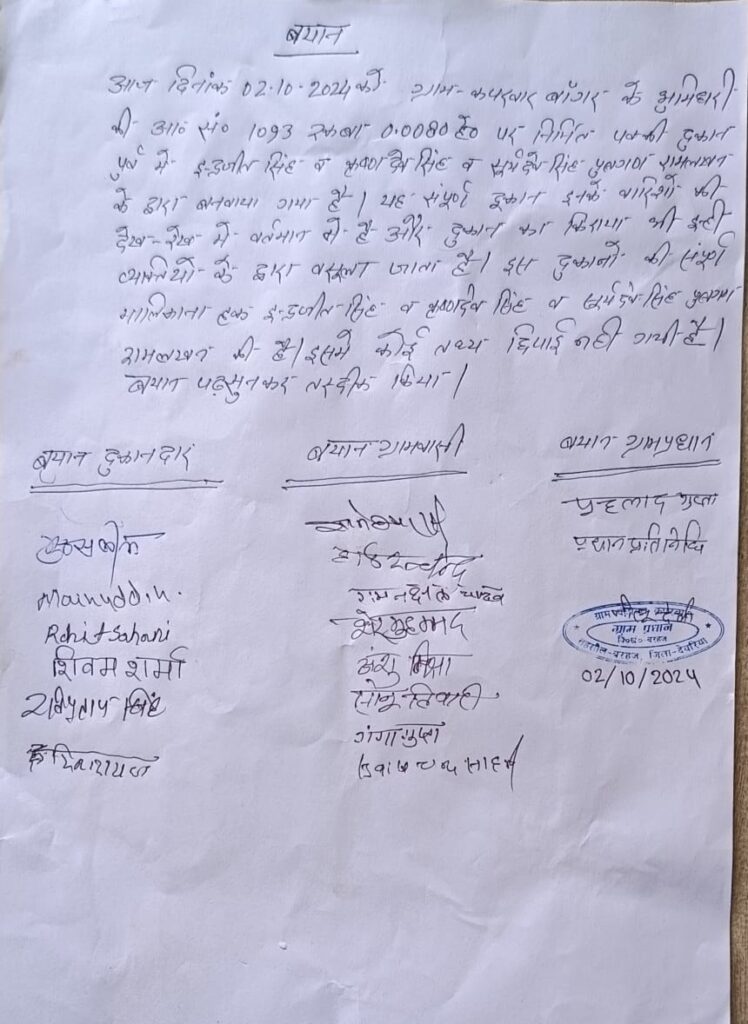 बयान
आज दिनांक 02.10.2024 को ग्राम-कपरवार बाँगर के भुमिधरी
की आ० सं० 1093 रकबा 0.0080 हे० पर निर्मित पक्की दुकान
पुर्व में इन्द्रजीत सिंह व कृष्णदेव सिंह व सुर्यदेव सिंह पुत्रगण रामलखन
के द्वारा बनवाया गया है। यह संपूर्ण दुकान इनके वारिशों की
देख-रेख में वर्तमान में है और दुकान का किराया भी इन्ही
व्यक्तियों के द्वारा वसूला जाता है। इस दुकानों की संपूर्ण
मालिकाना हक इन्द्रजीत सिंह व कृष्णदेव सिंह व सुर्यदेव सिंह पुत्रगण
रामलखन की है। इसमे कोई तथ्य छिपाई नही गयी है।
बयान पढ़ सुनकर तस्दीक किया।
बयान दुकानदार बयान ग्रामवासी बयान ग्रामप्रधान
Mainuddin.
Rohit Sahani
शिवम शर्मा
रविप्रताप सिंह
शेर मुहम्मद
अंशु मिश्रा
सोनू तिवारी
गंगा गुप्ता
प्रहलाद गुप्ता
प्रधान प्रतिनिधि
ग्राम प्रधान
तहसील-बरहज, जिला-देवरिया
02/10/2024